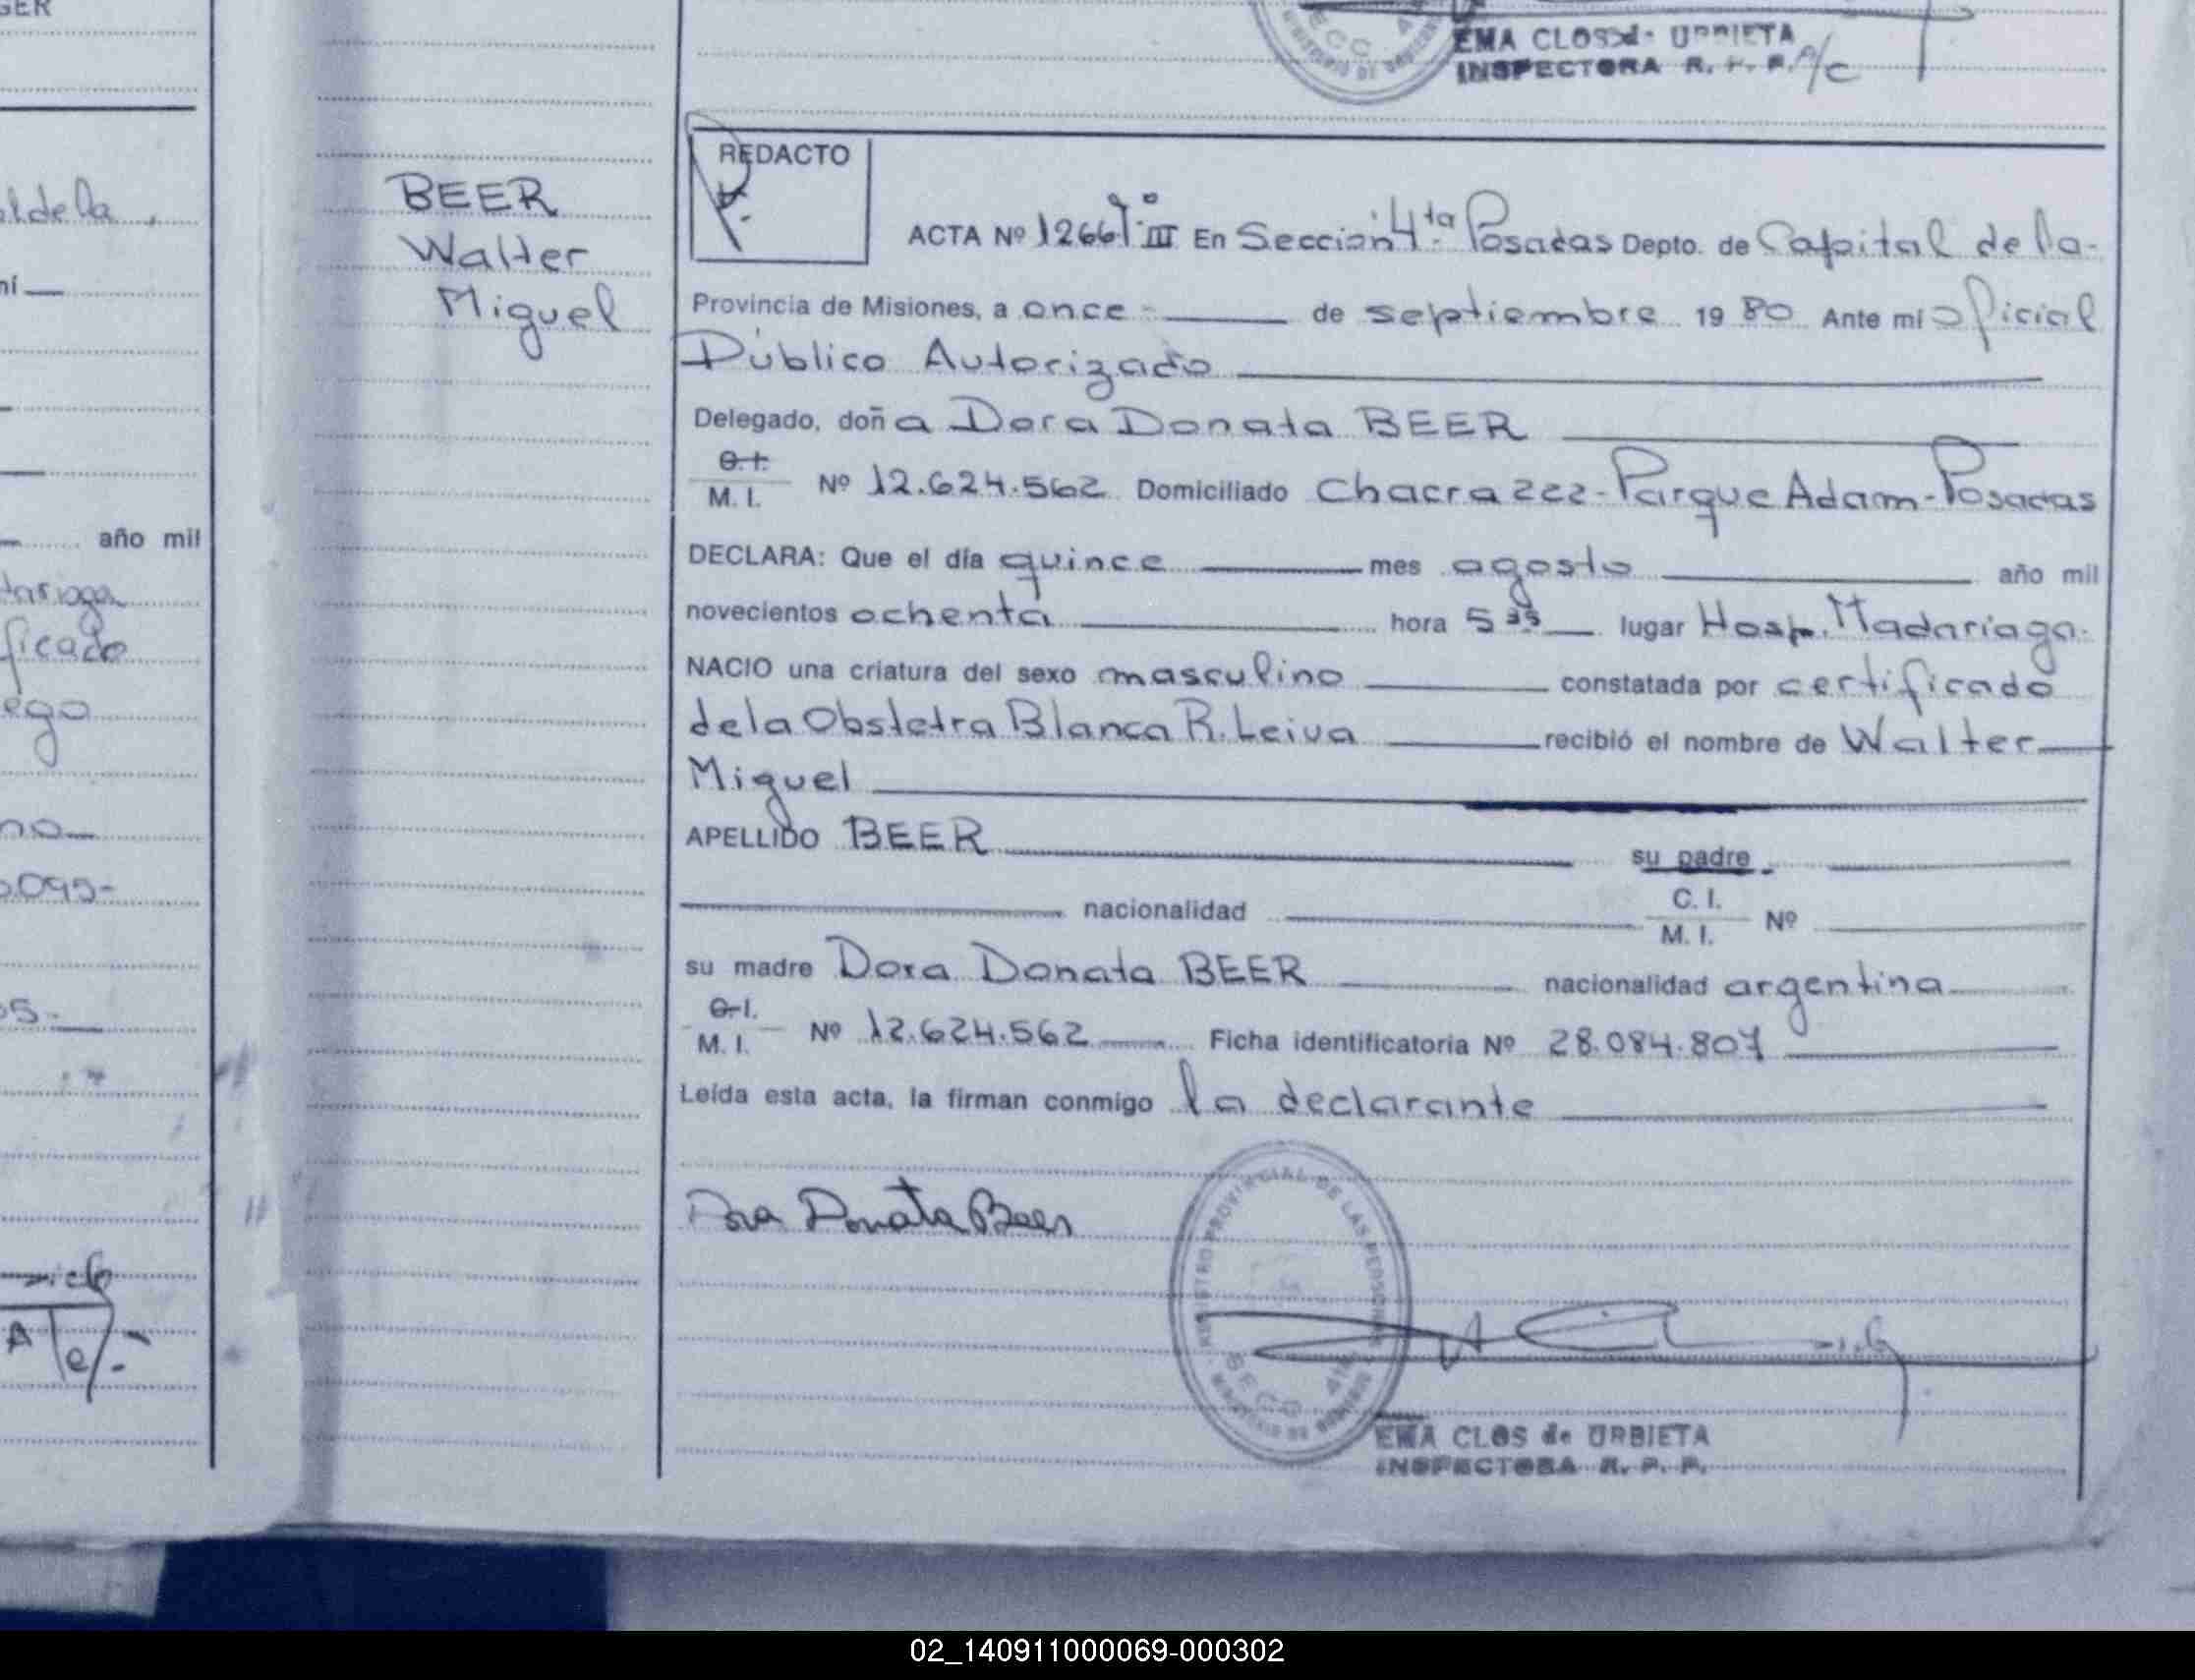 GER
EMA CLOS de URBIETA
INSPECTORA R. P. P. A/C
SECC. 4ta
REDACTO
ACTA Nº 1266 Tº III En Sección 4ta. Posadas Depto. de Capital de la-
Provincia de Misiones, a once - de septiembre 19 80 Ante mí Oficial
Público Autorizado
Delegado, doña Dora Donata BEER
C. I.
M. I. Nº 12.624.562 Domiciliado Chacra 222-Parque Adam-Posadas
DECLARA: Que el día quince mes agosto año mil
novecientos ochenta hora 5 35 lugar Hosp. Madariaga.
NACIO una criatura del sexo masculino constatada por certificado
de la Obstetra Blanca R. Leiva recibió el nombre de Walter
Miguel
APELLIDO BEER su padre
nacionalidad C. I.
M. I. Nº
su madre Dora Donata BEER nacionalidad argentina
C. I.
M. I. Nº 12.624.562 Ficha identificatoria Nº 28.084.807
Leída esta acta, la firman conmigo la declarante
Dora Donata Beer
REGISTRO PROVINCIAL DE LAS PERSONAS
SECC. 4ta
MINISTERIO DE GOBIERNO
EMA CLOS de URBIETA
INSPECTORA R. P. P.
BEER
Walter
Miguel
al de la,
mí
año mil
ficado
ego
no
.095-
05-
02_140911000069-000302